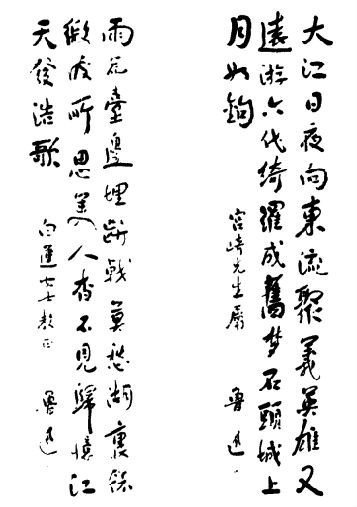 大江日夜向東流聚義英雄又
遠游六代綺羅成舊梦石頭城上
月如鉤
宮崎先生屬　魯迅
雨花臺邊埋斷戟莫愁湖裏餘
微波所思美人杳不見歸憶江
天發浩歌
白蓮女士教正　魯迅